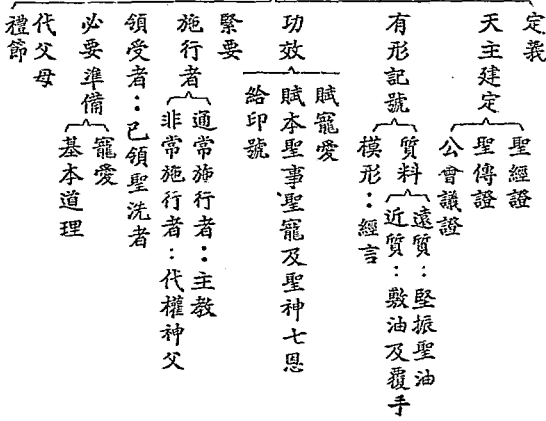 定義
天主建定
聖經證
聖傳證
公會議證
有形記號
質料
遠質：堅振聖油
近質：敷油及覆手
模形：經言
功效
賦寵愛
賦本聖事聖寵及聖神七恩
給印號
緊要
施行者
通常施行者：主教
非常施行者：代權神父
領受者：已領聖洗者
必要準備
寵愛
基本道理
代父母
禮節